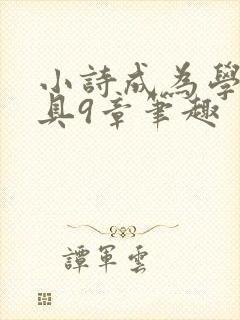 小詩成為學
具9章筆趣
譚軍雲